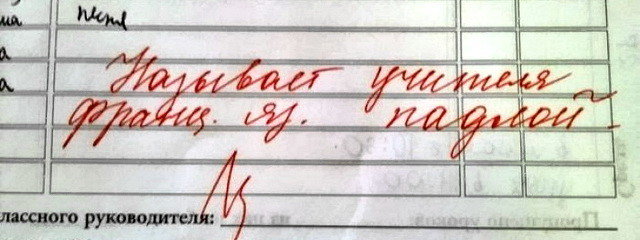 ма пстя
а Называет учителя
а франц. яз. падлой.
лассного руководителя: